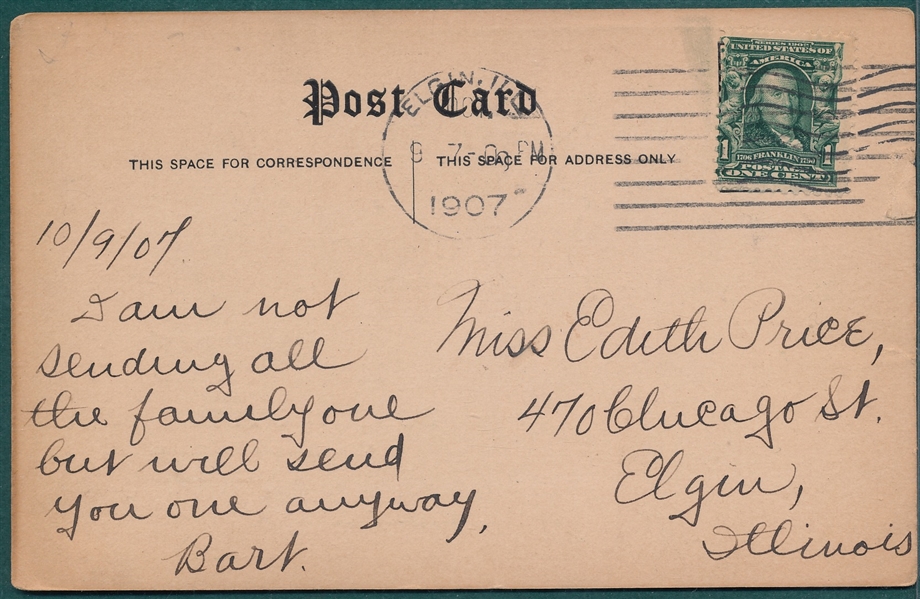 Post Card
THIS SPACE FOR CORRESPONDENCE
THIS SPACE FOR ADDRESS ONLY
ELGIN, ILL.
9 7-0 PM
1907
SERIES 1902
UNITED STATES OF
AMERICA
1 1706 FRANKLIN 1790 1
POSTAGE
ONE CENT
10/9/07
I am not
sending all
the family one
but will send
you one anyway,
Bart.
Miss Edith Price,
470 Chicago St.
Elgin,
Illinois